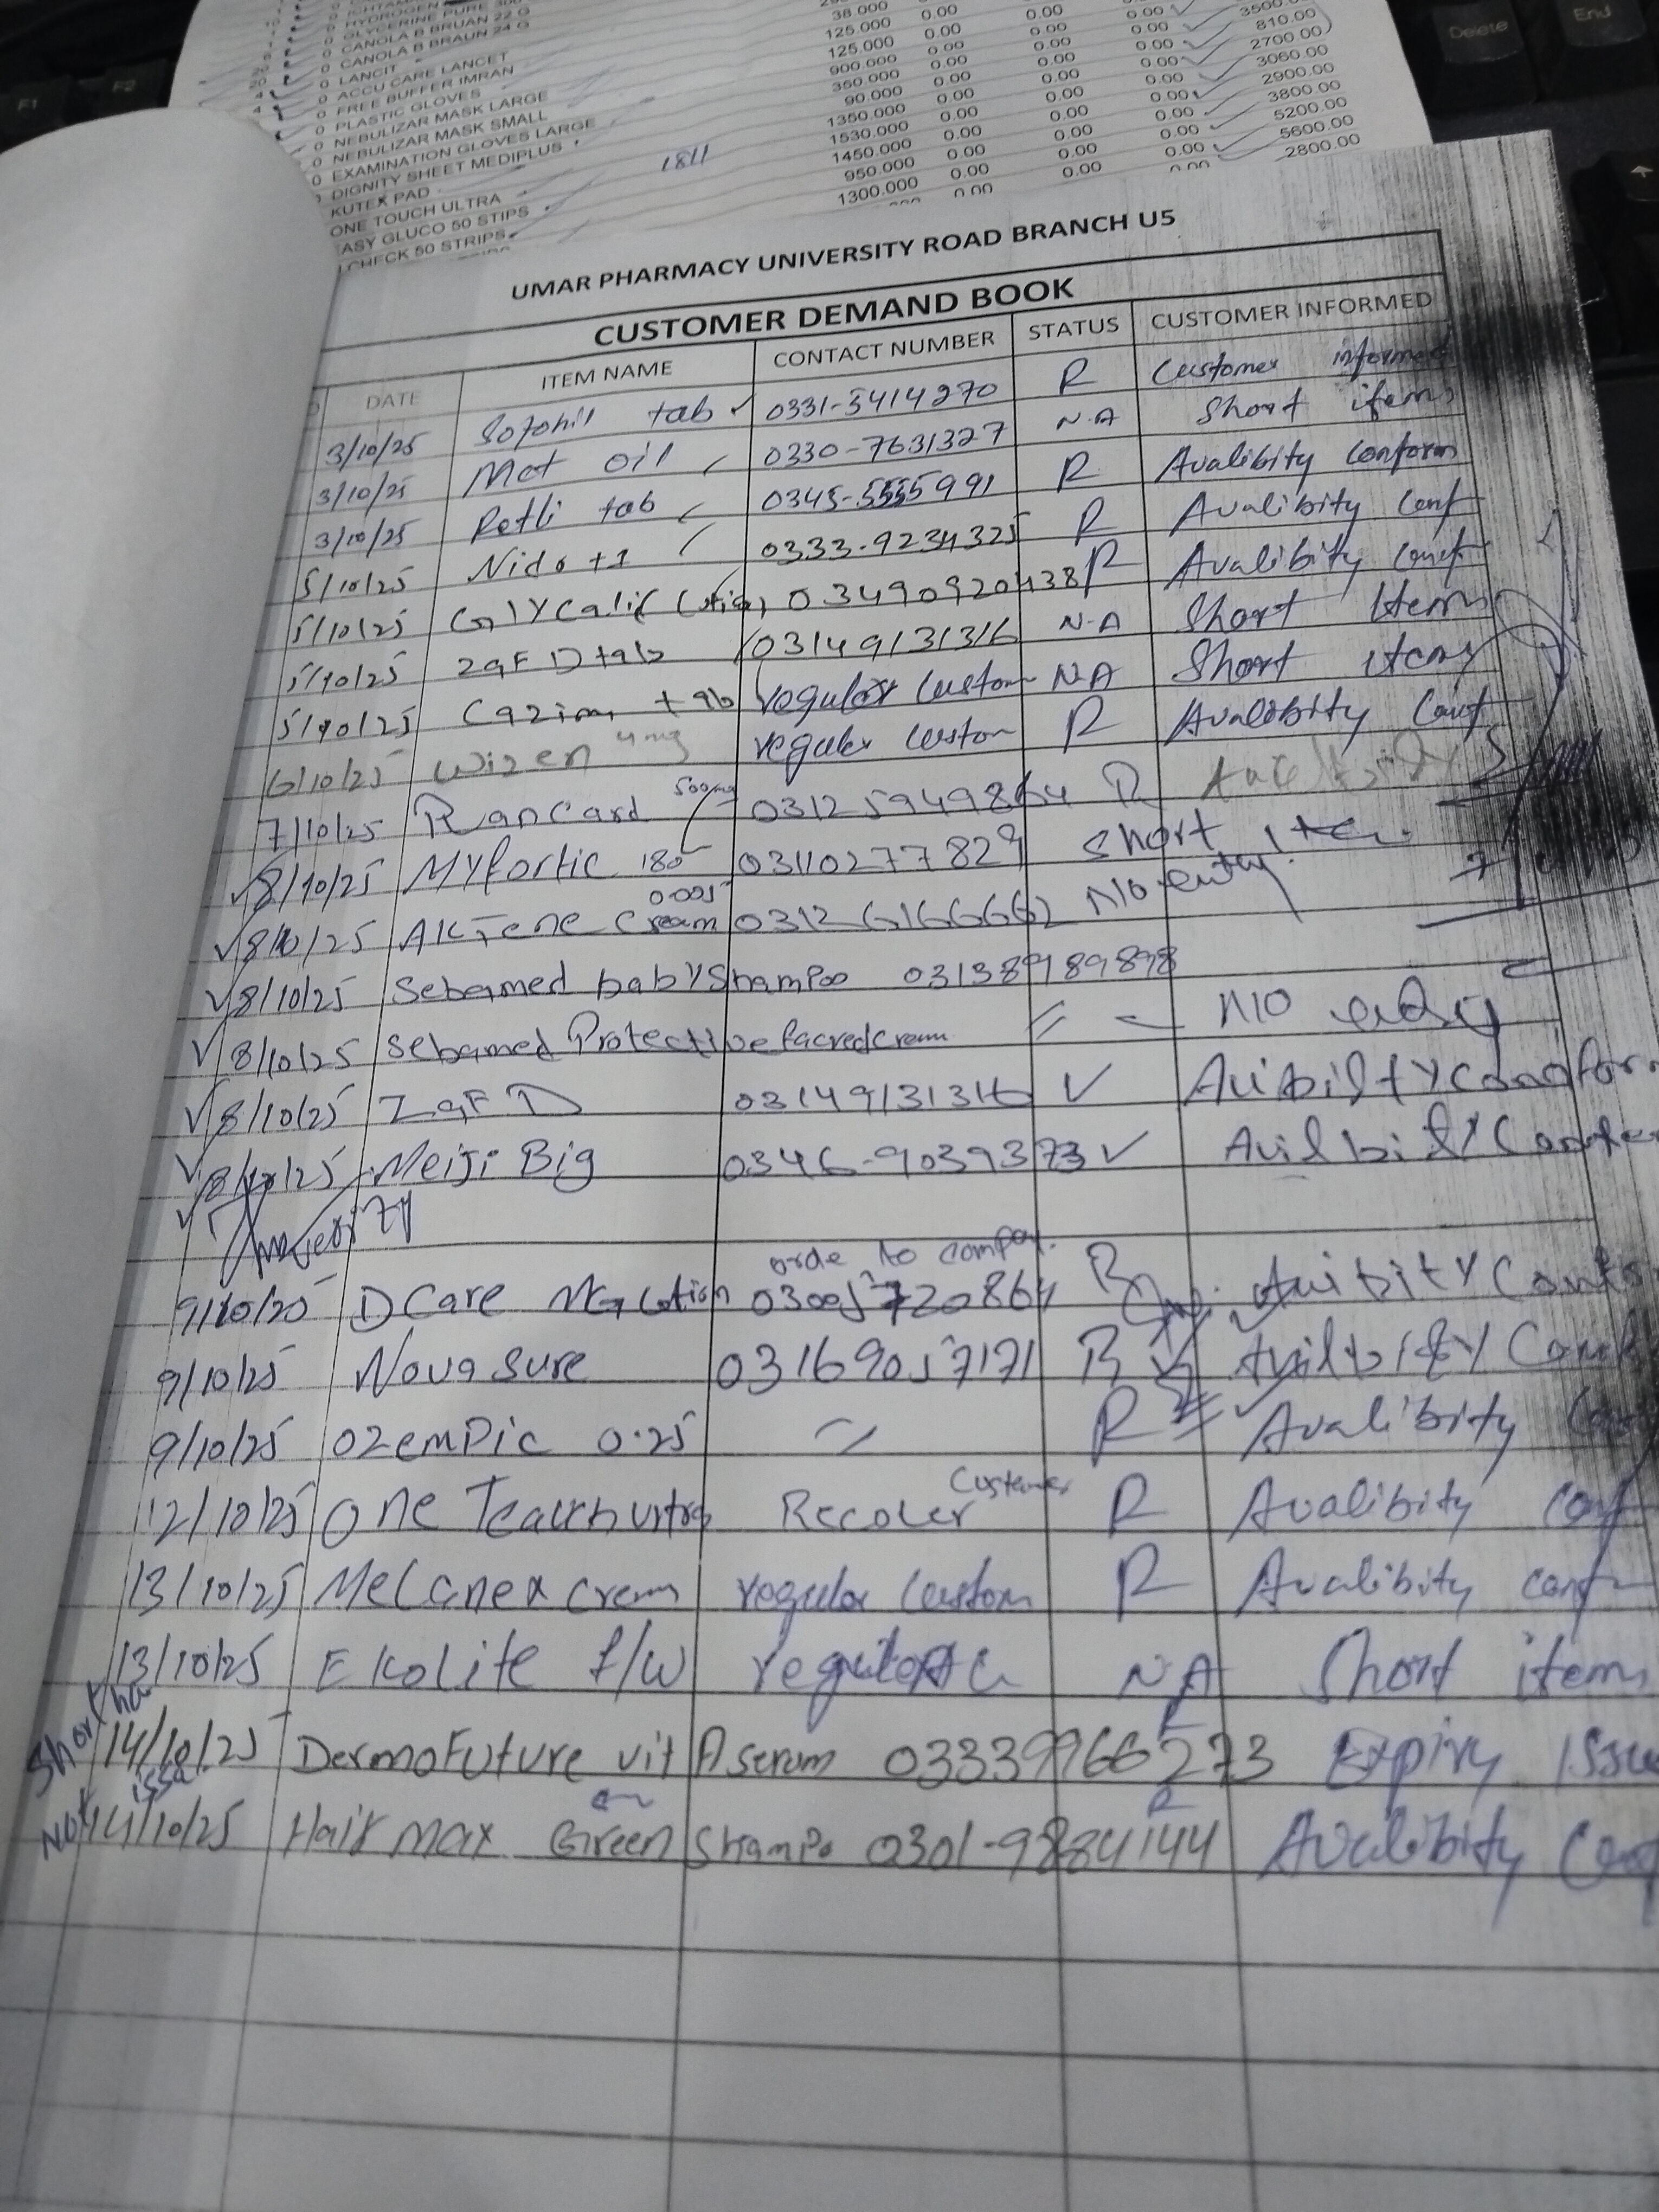 HYDROGEN
GLYCERINE PURE
0 CANOLA B BRUAN 22 G
0 CANOLA B BRAUN 24 G
0 LANCIT
0 ACCU CARE LANCET
0 FREE BUFFER IMRAN
0 PLASTIC GLOVES
0 NEBULIZAR MASK LARGE
0 NEBULIZAR MASK SMALL
0 EXAMINATION GLOVES LARGE
DIGNITY SHEET MEDIPLUS
KUTEX PAD
ONE TOUCH ULTRA
ASY GLUCO 50 STIPS
CHECK 50 STRIPS
38.000 0.00 0.00 0.00
125.000 0.00 0.00 0.00 3500.00
125.000 0.00 0.00 0.00 810.00
900.000 0.00 0.00 0.00 2700.00
360.000 0.00 0.00 0.00 3060.00
90.000 0.00 0.00 0.00 2900.00
1350.000 0.00 0.00 0.00 3800.00
1530.000 0.00 0.00 0.00 5200.00
1450.000 0.00 0.00 0.00 5600.00
950.000 0.00 0.00 0.00 2800.00
1300.000 0.00
1811
UMAR PHARMACY UNIVERSITY ROAD BRANCH U5
CUSTOMER DEMAND BOOK
DATE ITEM NAME CONTACT NUMBER STATUS CUSTOMER INFORMED
3/10/25 Sofohil tab 0331-5414270 R Customer informed
3/10/25 Mct oil 0330-7631327 N.A Short items
3/10/25 Retli tab 0345-5555991 R Avalibity conform
5/10/25 Nido +1 0333-9234325 R Avalibity conf
5/10/25 03490920438 R Avalibity conf
5/10/25 ZaF D tab 03149131316 N-A Short Items
5/10/25 Cazim tab regular custom NA Short items
6/10/25 Wizen 4mg regular custom R Avalibity conf
7/10/25 RanCard 500mg 03125949864 R
8/10/25 Myfortic 180 03110277829 Short Item
8/10/25 AKTene Cream 0.005 03126166662 No entry
8/10/25 Sebamed baby Shampoo 031389189898
8/10/25 Sebamed Protective facred cream = NO
8/10/25 ZaF D 03149131316 ✓ Avibilty Conofor
8/10/25 Meiji Big 0346-9039373 ✓ Avilbilty Confer
orde to compay.
9/10/25 D Care Mg Lotion 03005720864 R Avibity Conf
9/10/25 Novasure 03169057171 R Avilbilty Conf
9/10/25 OZemPic 0.25 R Avalibity
12/10/25 One Teauch urtra Recoler Customer R Avalibity conf
13/10/25 Melanex Crem regular custom R Avalibity conf
13/10/25 Ekolite f/w regular c NA Short items
Short ha
14/10/25 DermoFuture vit A serum 03339966273 Expiry Issue
issa
Not 14/10/25 Hair max Green Shampo 0301-9884144 R Avalibity Conf